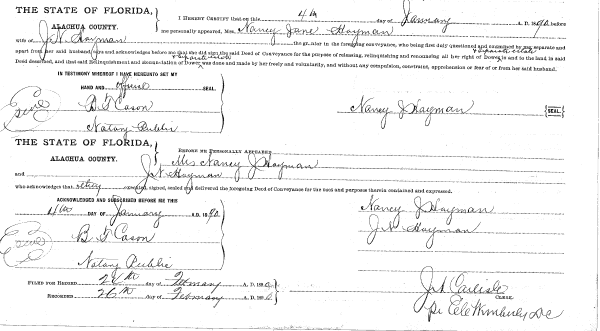 THE STATE OF FLORIDA,
ALACHUA COUNTY.
I HEREBY CERTIFY that on this 4th day of January A. D. 1890, before
me personally appeared, Mrs. Nancy Jane Hayman
wife of J. N. Hayman the grantor in the foregoing conveyance, who being first duly questioned and examined by me separate and
& separate estate
apart from her said husband, and acknowledges before me that she did sign the said Deed of Conveyance for the purpose of releasing, relinquishing and renouncing all her right of Dower in and to the land in said
& separate estate
Deed described, and that said Relinquishment and Renunciation of Dower was done and made by her freely and voluntarily, and without any compulsion, constraint, apprehension or fear of or from her said husband.
IN TESTIMONY WHEREOF I HAVE HEREUNTO SET MY
HAND AND official SEAL.
B F Cason
Nancy J Hayman {SEAL}
Notary Public
THE STATE OF FLORIDA,
ALACHUA COUNTY.
BEFORE ME PERSONALLY APPEARED
Mrs Nancy J Hayman
and J N Hayman
who acknowledges that they signed, sealed and delivered the foregoing Deed of Conveyance for the uses and purposes therein contained and expressed.
ACKNOWLEDGED AND SUBSCRIBED BEFORE ME THIS
4th DAY OF January A.D. 1890.
Nancy J Hayman
J N Hayman
B F Cason
Notary Public
FILED FOR RECORD 26th day of February A. D. 1890
RECORDED 26th day of February A. D. 1890
J A Carlisle
CLERK.
DC